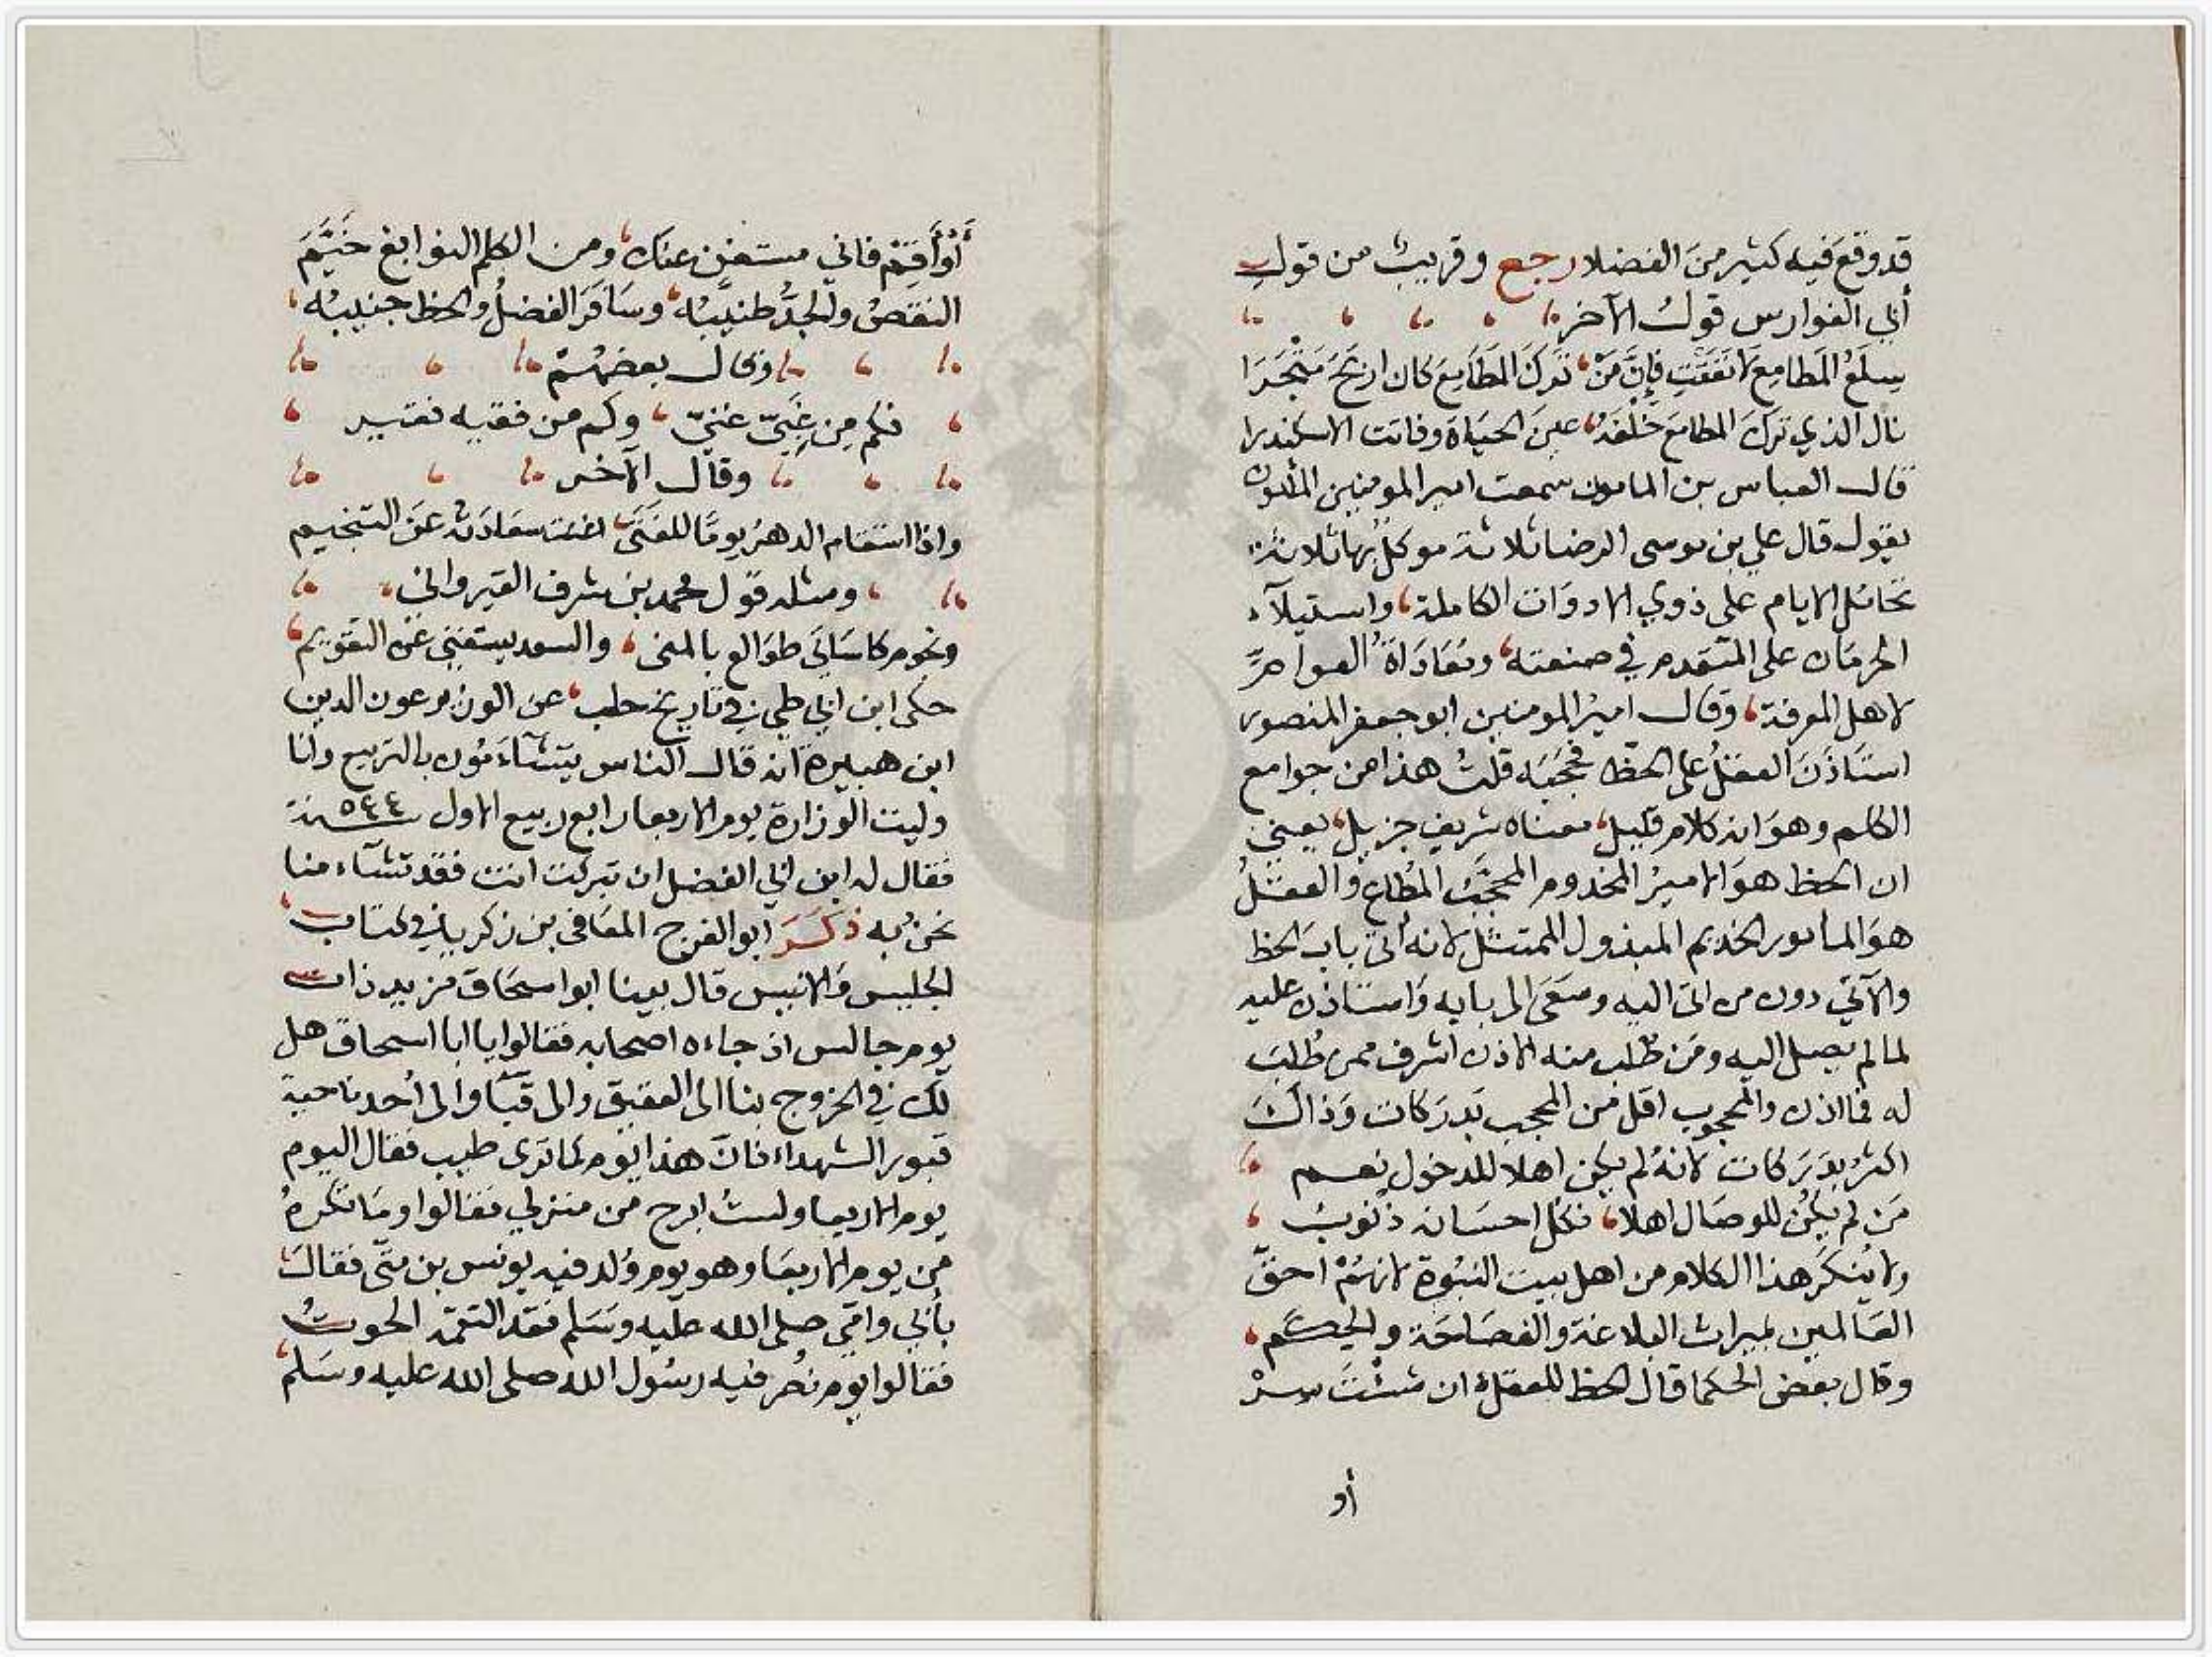 قد وقع فيه كثير من الفضلا رجع وقريب من قول
أبي الفوارس قول الآخر
سلع المطامع لا نفقت فإن من تركَ المطامع كان اربح متجرا
نال الذي ترك المطامع خلفه عين الحياة وفاتت الاسكندرا
قال العباس بن المامون سمعت امير المومنين المأمون
يقول قال علي بن موسى الرضا ثلاثة موكل بها ثلاثة
تحامل الايام على ذوي الادوات الكاملة واستيلآء
الحرمان على المتقدم في صنعته ومعاداة العوام
لاهل المعرفة وقال امير المومنين ابو جعفر المنصور
استاذن العقل على الحظ فحجبه قلت هذا من جوامع
الكلم وهو انه كلام قليل معناه شريف جزيل يعني
ان الحظ هو الامير المخدوم المحجب المُطاع والعقلُ
هو المامور الخديم المبذول الممتثل لانه أتى باب الحظ
والآتي دون من اتى اليه وسعى الى بابه واستاذن عليه
لما لم يصل اليه ومن طلب منه الاذن اشرف ممن طُلب
له فما اذن والمحجوب اقل من المحجب بدركات وذاك
اكثر بدركات لانهُ لم يكن اهلا للدخول نعم
من لم يكن للوصال اهلا فكل احسانه ذنوب
ولا ينكر هذا الكلام من اهل بيت النبوة لانهُمْ احقّ
العالمين بميراث البلاغة والفصاحة والحِكم
وقال بعض الحكما قال الحظ للعقل ان شئتَ سِرْ
أو
أوْ أقِمْ فاني مستغن عنك ومن الكلم النوابغ خَيَّمَ
النقصُ والجدُّ طنيبُه وسافَرَ الفضلُ والحظ جنيبُه
وقال بعضهُمْ
فكم من غَبِيّ غنيّ وكم من فقيه فقير
وقال الآخر
واذا استقام الدهرُ يومًا للفتى اغنت سعادته عن التنجيم
ومثله قول محمد بن شرف القيرواني
ونجوم كاساتي طوالع بالمنى والسعد يستغني عن التقويم
حكى ابن ابي طي في تاريخ حلب عن الوزير عون الدين
ابن هبيرة انه قال الناس يتشاءمون بالتربيع وانا
وليت الوزارة يوم الاربعا رابع ربيع الاول سنة ٥٤٤
فقال له ابن ابي الفضل ان تبركت انت فقد تشآء منا
نحنُ به ذكَرَ ابو الفرج المعافى بن زكريا في كتاب
الجليس والانيس قال بينا ابو اسحاق مزيد ذات
يوم جالس اذ جاءه اصحابه فقالوا يا ابا اسحاق هل
لك في الخروج بنا الى العقيق والى قبا والى أحد ناحية
قبور الشهداء فان هذا يوم كما ترى طيب فقال اليوم
يوم الاربعا ولست ابرح من منزلي فقالوا وما تكرهُ
من يوم الاربعا وهو يوم وُلد فيه يونس بن متّى فقال
بأبي وامّي صلى الله عليه وسلم فقد التقمه الحوت
فقالوا يوم نُصر فيه رسُول الله صلى الله عليه وسلم